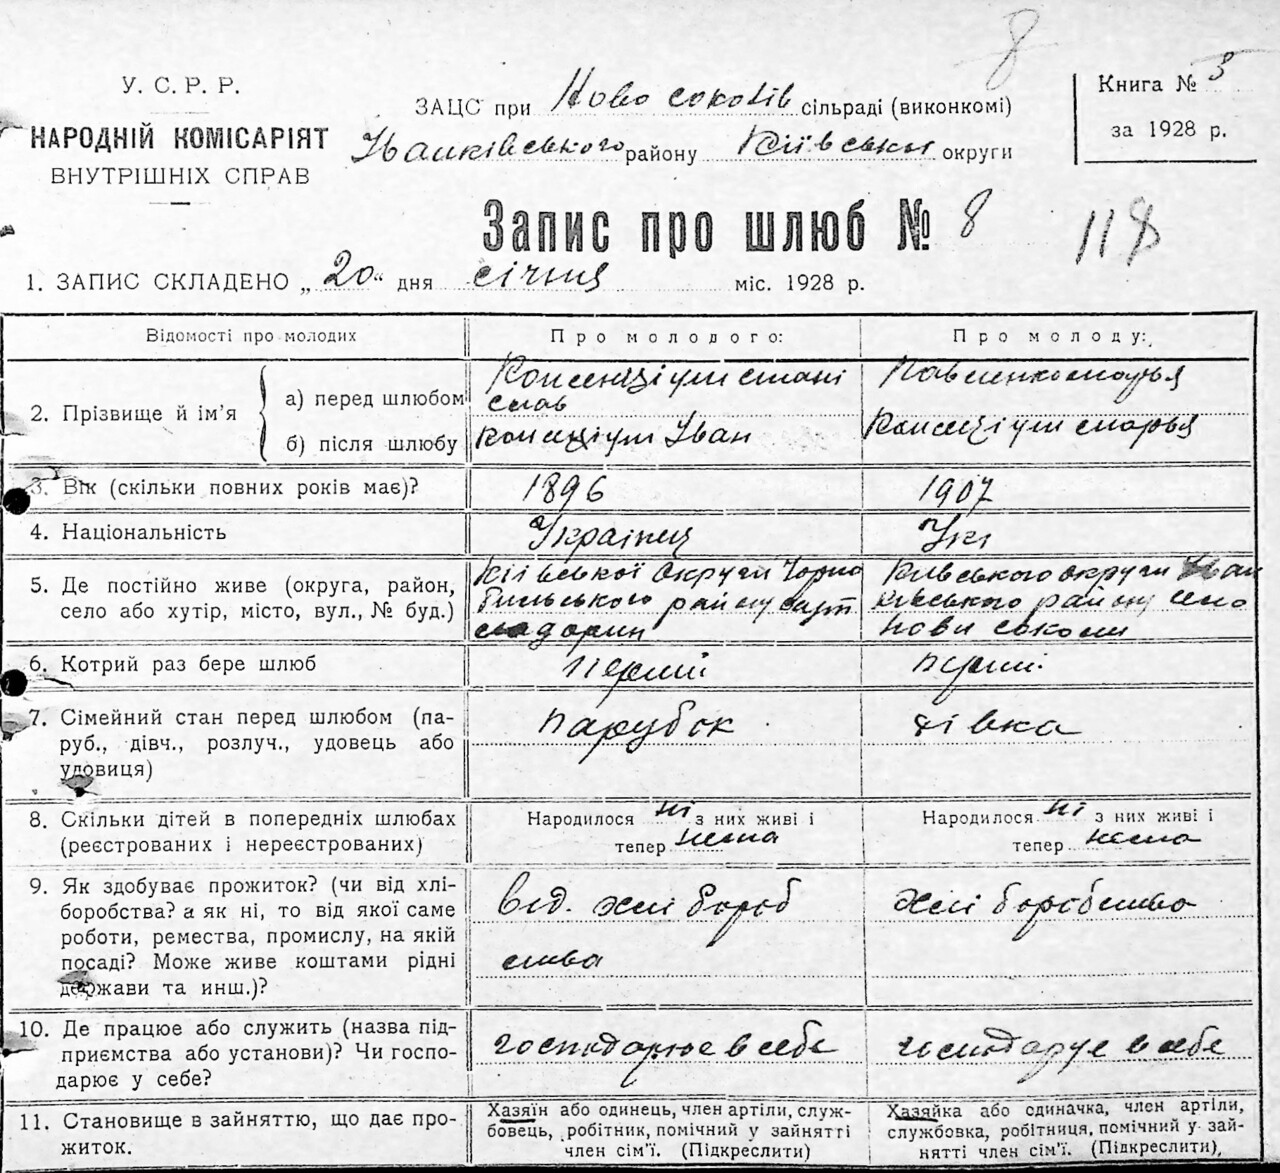 8
У. С. Р. Р.
НАРОДНІЙ КОМІСАРІЯТ
ВНУТРІШНІХ СПРАВ
ЗАЦС при Ново соколів сільраді (виконкомі)
Іванківського району Київськи округи
Книга № 3
за 1928 р.
Запис про шлюб № 8
118
1. ЗАПИС СКЛАДЕНО „ 20 " дня січния міс. 1928 р.
Відомості про молодих
Про молодого:
Про молоду:
2. Прізвище й ім'я
а) перед шлюбом
слав
Павленко марья
б) після шлюбу
Іван
марья
3. Вік (скільки повних років має)?
1896
1907
4. Національність
Українец
Укі
5. Де постійно живе (округа, район,
село або хутір, місто, вул., № буд.)
Київської округи Чорно
бильського району хут
Київського округи Іван
ківського району село
нови соколи
6. Котрий раз бере шлюб
перший
перший
7. Сімейний стан перед шлюбом (па-
руб., дівч., розлуч., удовець або
удовиця)
парубок
дівка
8. Скільки дітей в попередніх шлюбах
(реєстрованих і нереєстрованих)
Народилося ні з них живі і
тепер нема
Народилося ні з них живі і
тепер нема
9. Як здобуває прожиток? (чи від хлі-
боробства? а як ні, то від якої саме
роботи, ремества, промислу, на якій
посаді? Може живе коштами рідні
держави та инш.)?
від. хлі бороб
ства
хлі боробство
10. Де працює або служить (назва під-
приємства або установи)? Чи госпо-
дарює у себе?
господарює в себе
господарує в себе
11. Становище в зайняттю, що дає про-
житок.
Хазяїн або одинець, член артіли, служ-
бовець, робітник, помічний у зайнятті
член сім'ї. (Підкреслити)
Хазяйка або одиначка, член артіли,
службовка, робітниця, помічний у зай-
нятті член сім'ї. (Підкреслити),